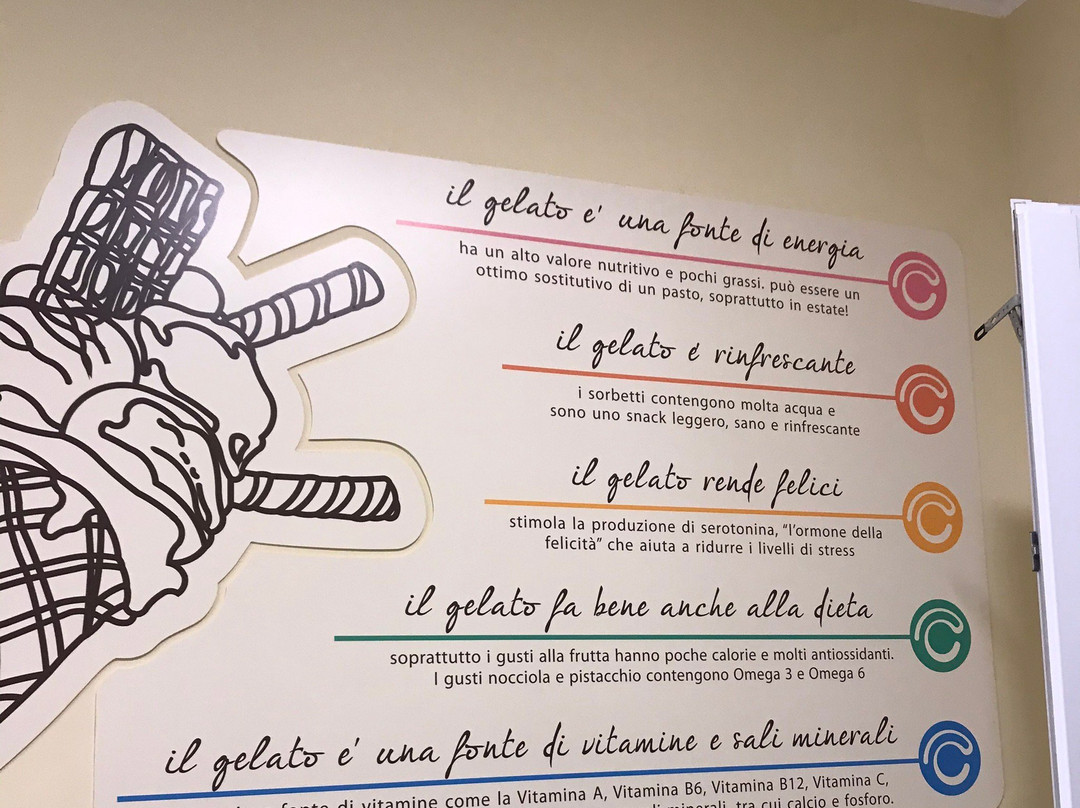 il gelato e' una fonte di energia
ha un alto valore nutritivo e pochi grassi. può essere un
ottimo sostitutivo di un pasto, soprattutto in estate!
il gelato é rinfrescante
i sorbetti contengono molta acqua e
sono uno snack leggero, sano e rinfrescante
il gelato rende felici
stimola la produzione di serotonina, “l’ormone della
felicità” che aiuta a ridurre i livelli di stress
il gelato fa bene anche alla dieta
soprattutto i gusti alla frutta hanno poche calorie e molti antiossidanti.
I gusti nocciola e pistacchio contengono Omega 3 e Omega 6
il gelato e' una fonte di vitamine e sali minerali
fonte di vitamine come la Vitamina A, Vitamina B6, Vitamina B12, Vitamina C,
minerali, tra cui calcio e fosforo.